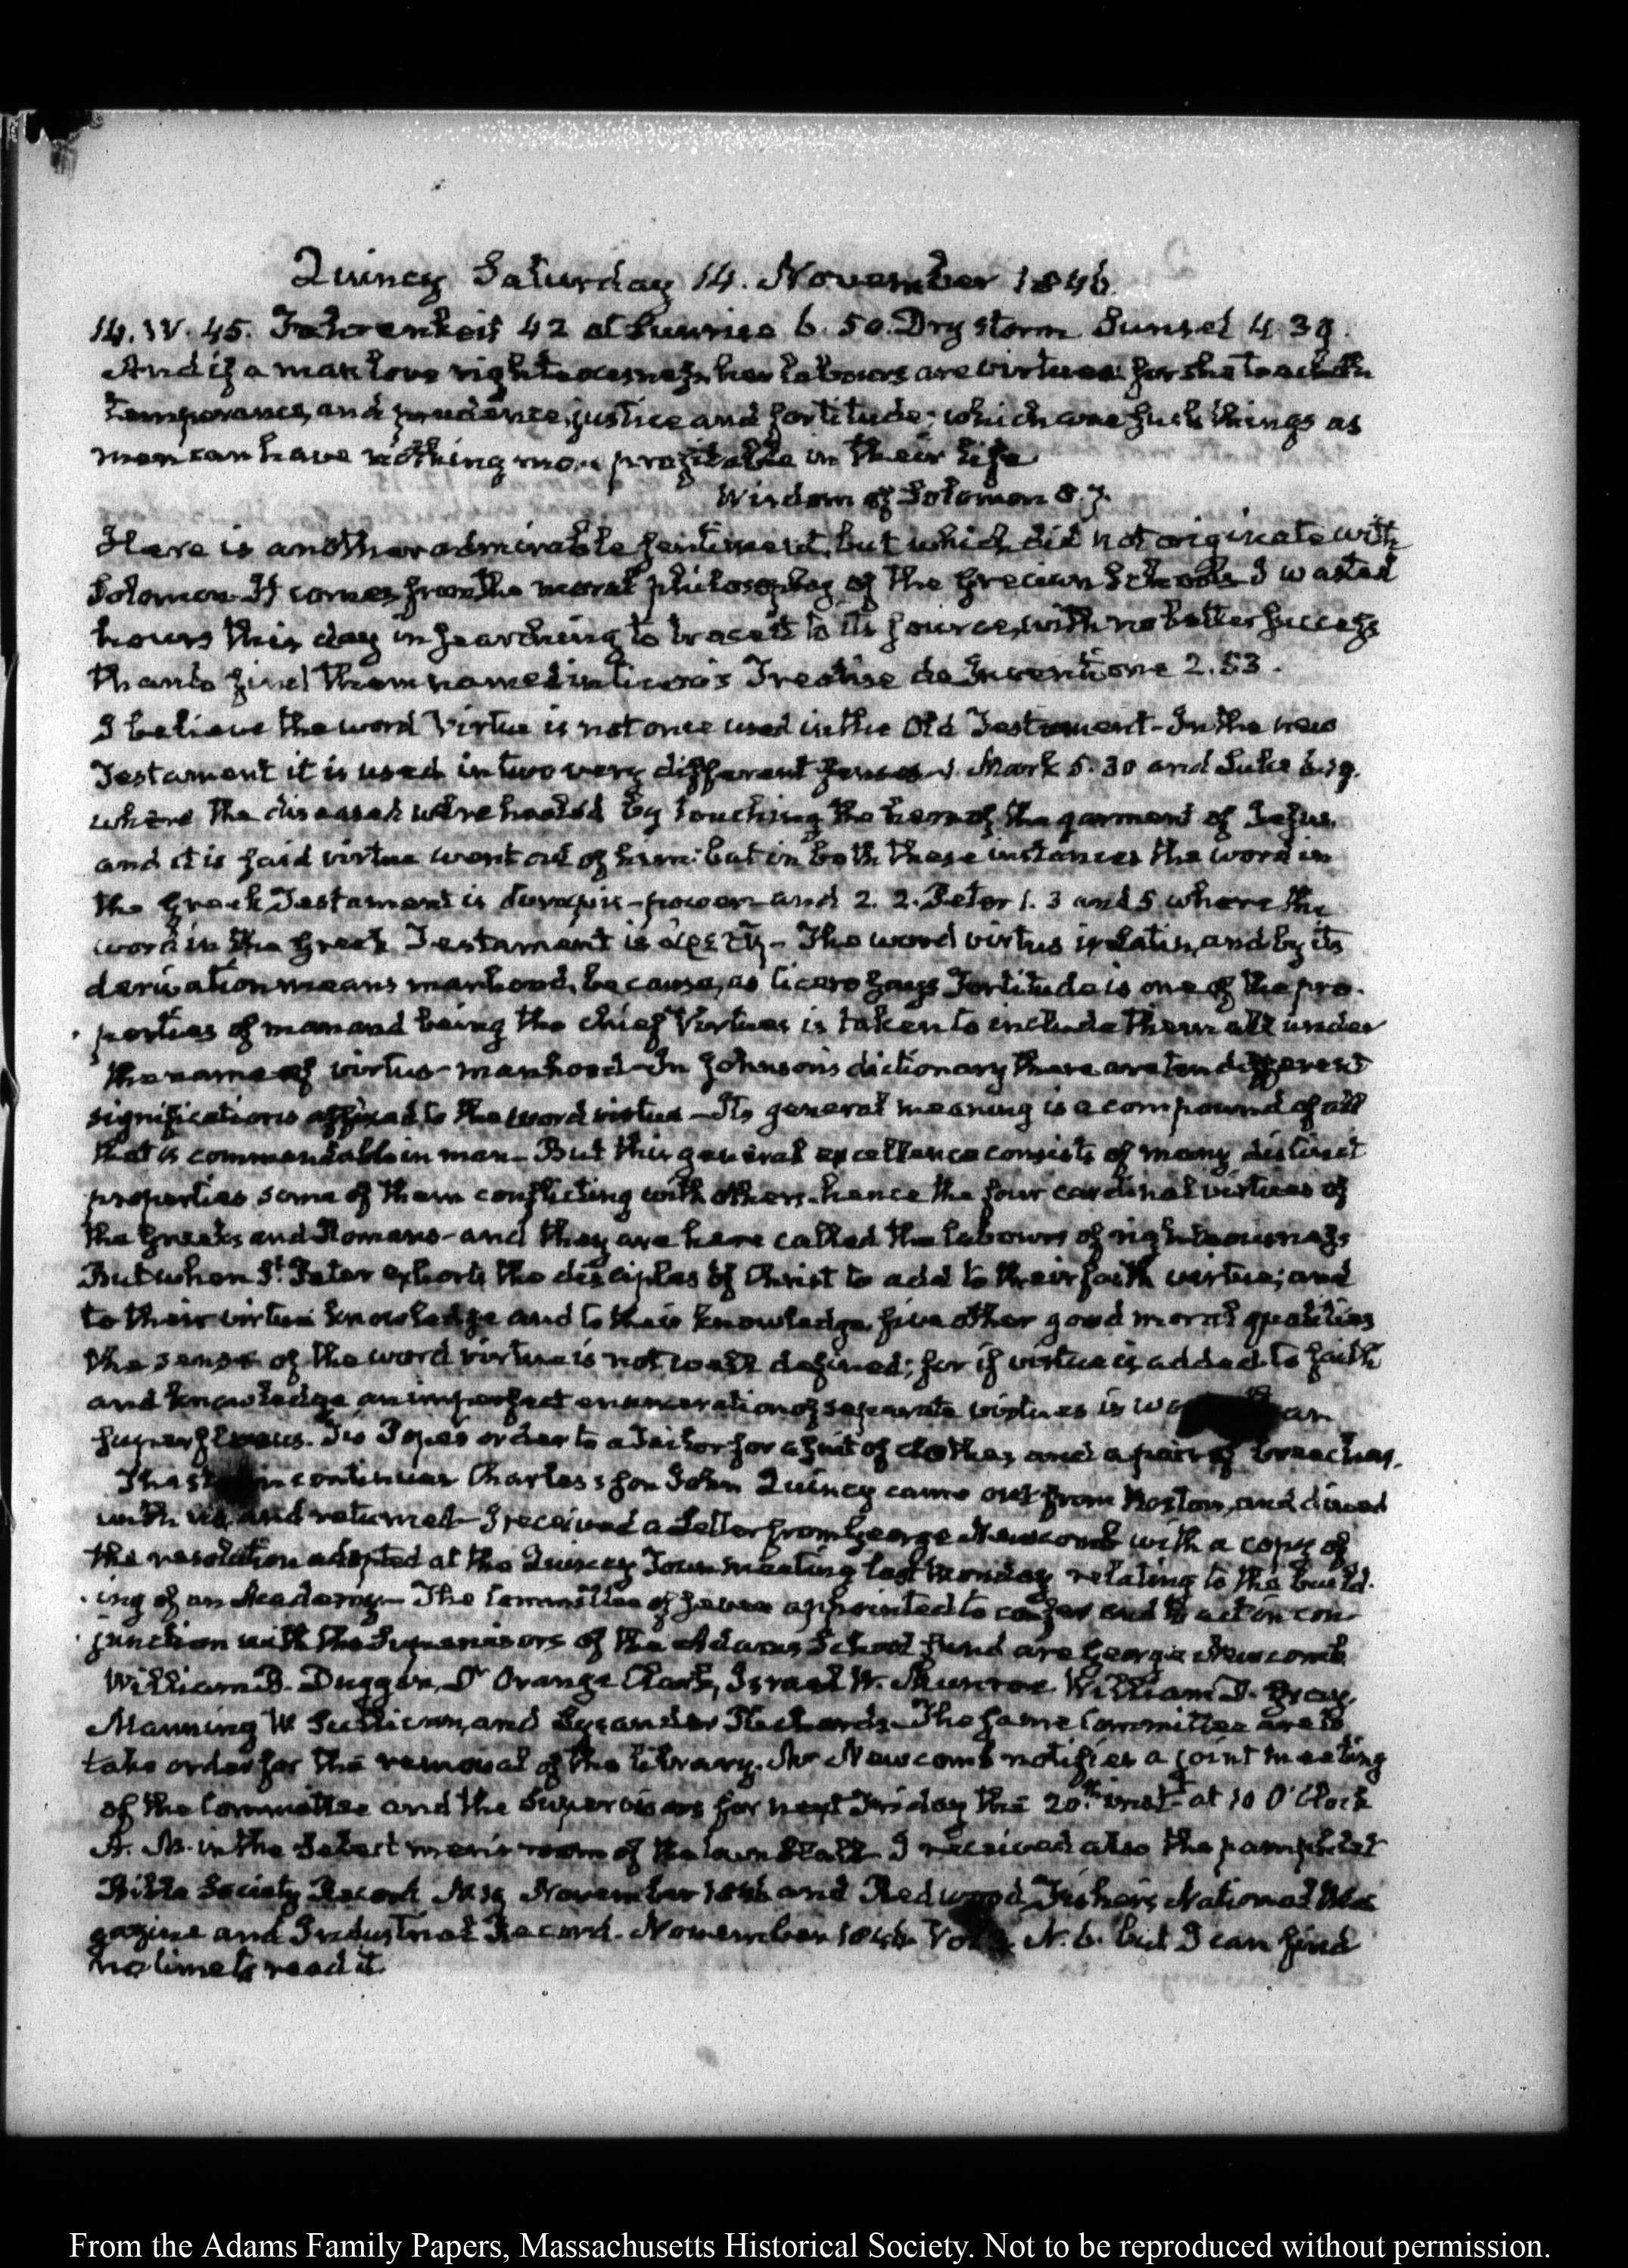 Quincy Saturday 14. November 1846.
14. IV. 45. Fahrenheit 42 at Sunrise 6. 50. Dry storm Sunset 4. 39.
And if a man love righteousness, her labours are virtues: for she teacheth
temperance, and prudence, justice and fortitude; which are such things as
men can have nothing more profitable in their life
Wisdom of Solomon 8. 7.
Here is another admirable sentiment, but which did not originate with
Solomon. It comes from the moral philosophy of the Grecian Schools. I wasted
hours this day in searching to trace it to its source, with no better success
than to find them named in Cicero's Treatise de Inventione 2. 53.
I believe the word Virtue is not once used in the Old Testament - In the new
Testament it is used in two very different senses 1. Mark 5. 30 and Luke 6. 19.
where the diseased were healed by touching the hem of the garment of Jesus,
and it is said virtue went out of him: but in both these instances the word in
the Greek Testament is δυναμις - power - and 2. 2. Peter 1. 3 and 5. where the
word in the Greek Testament is ἀρετὴ - The word virtus is latin, and by its
derivation means manhood, because, as Cicero says Fortitude is one of the pro-
perties of man and being the chief Virtues is taken to include them all under
the name of virtus - manhood - In Johnson's dictionary there are ten different
significations affixed to the word virtue - Its general meaning is a compound of all
that is commendable in man - But this general excellence consists of many distinct
properties some of them conflicting with others - hence the four cardinal virtues of
the Greeks and Romans - and they are here called the labours of righteousness
But when St. Peter exhorts the disciples of Christ to add to their faith virtue; and
to their virtue knowledge and to their knowledge, five other good moral qualities
the sense of the word virtue is not well defined; for if virtue is added to faith
and knowledge an imperfect enumeration of separate virtues is
superfluous. Tis Pope's order to a Tailor for a suit of clothes, and a pair of breeches.
The continues Charles's son John Quincy came out from Boston, and dined
with us, and returned - I received a Letter from George Newcomb with a copy of
the resolution adopted at the Quincy Town meeting last Monday relating to the build-
ing of an Academy - The Committee of seven appointed to confer and to act in con-
junction with the Supervisors of the Adams School fund are George Newcomb
William B. Duggan, Dr Orange Clark, Israel W. Munroe William D. Gray,
Manning W. and Lysander Richards - The same Committee are to
take order for the removal of the library. Mr Newcomb notifies a joint meeting
of the Committee and the Supervisors for next Friday the 20th. inst. at 10 O'Clock
A. M. in the Select men's room of the town Hall - I received also the pamphlet
Bible Society Record November 1846 and Redwood Fisher's National Ma
gazine and Industrial Record. November 1846. N. 6. but I can find
no time to read it.
From the Adams Family Papers, Massachusetts Historical Society. Not to be reproduced without permission.